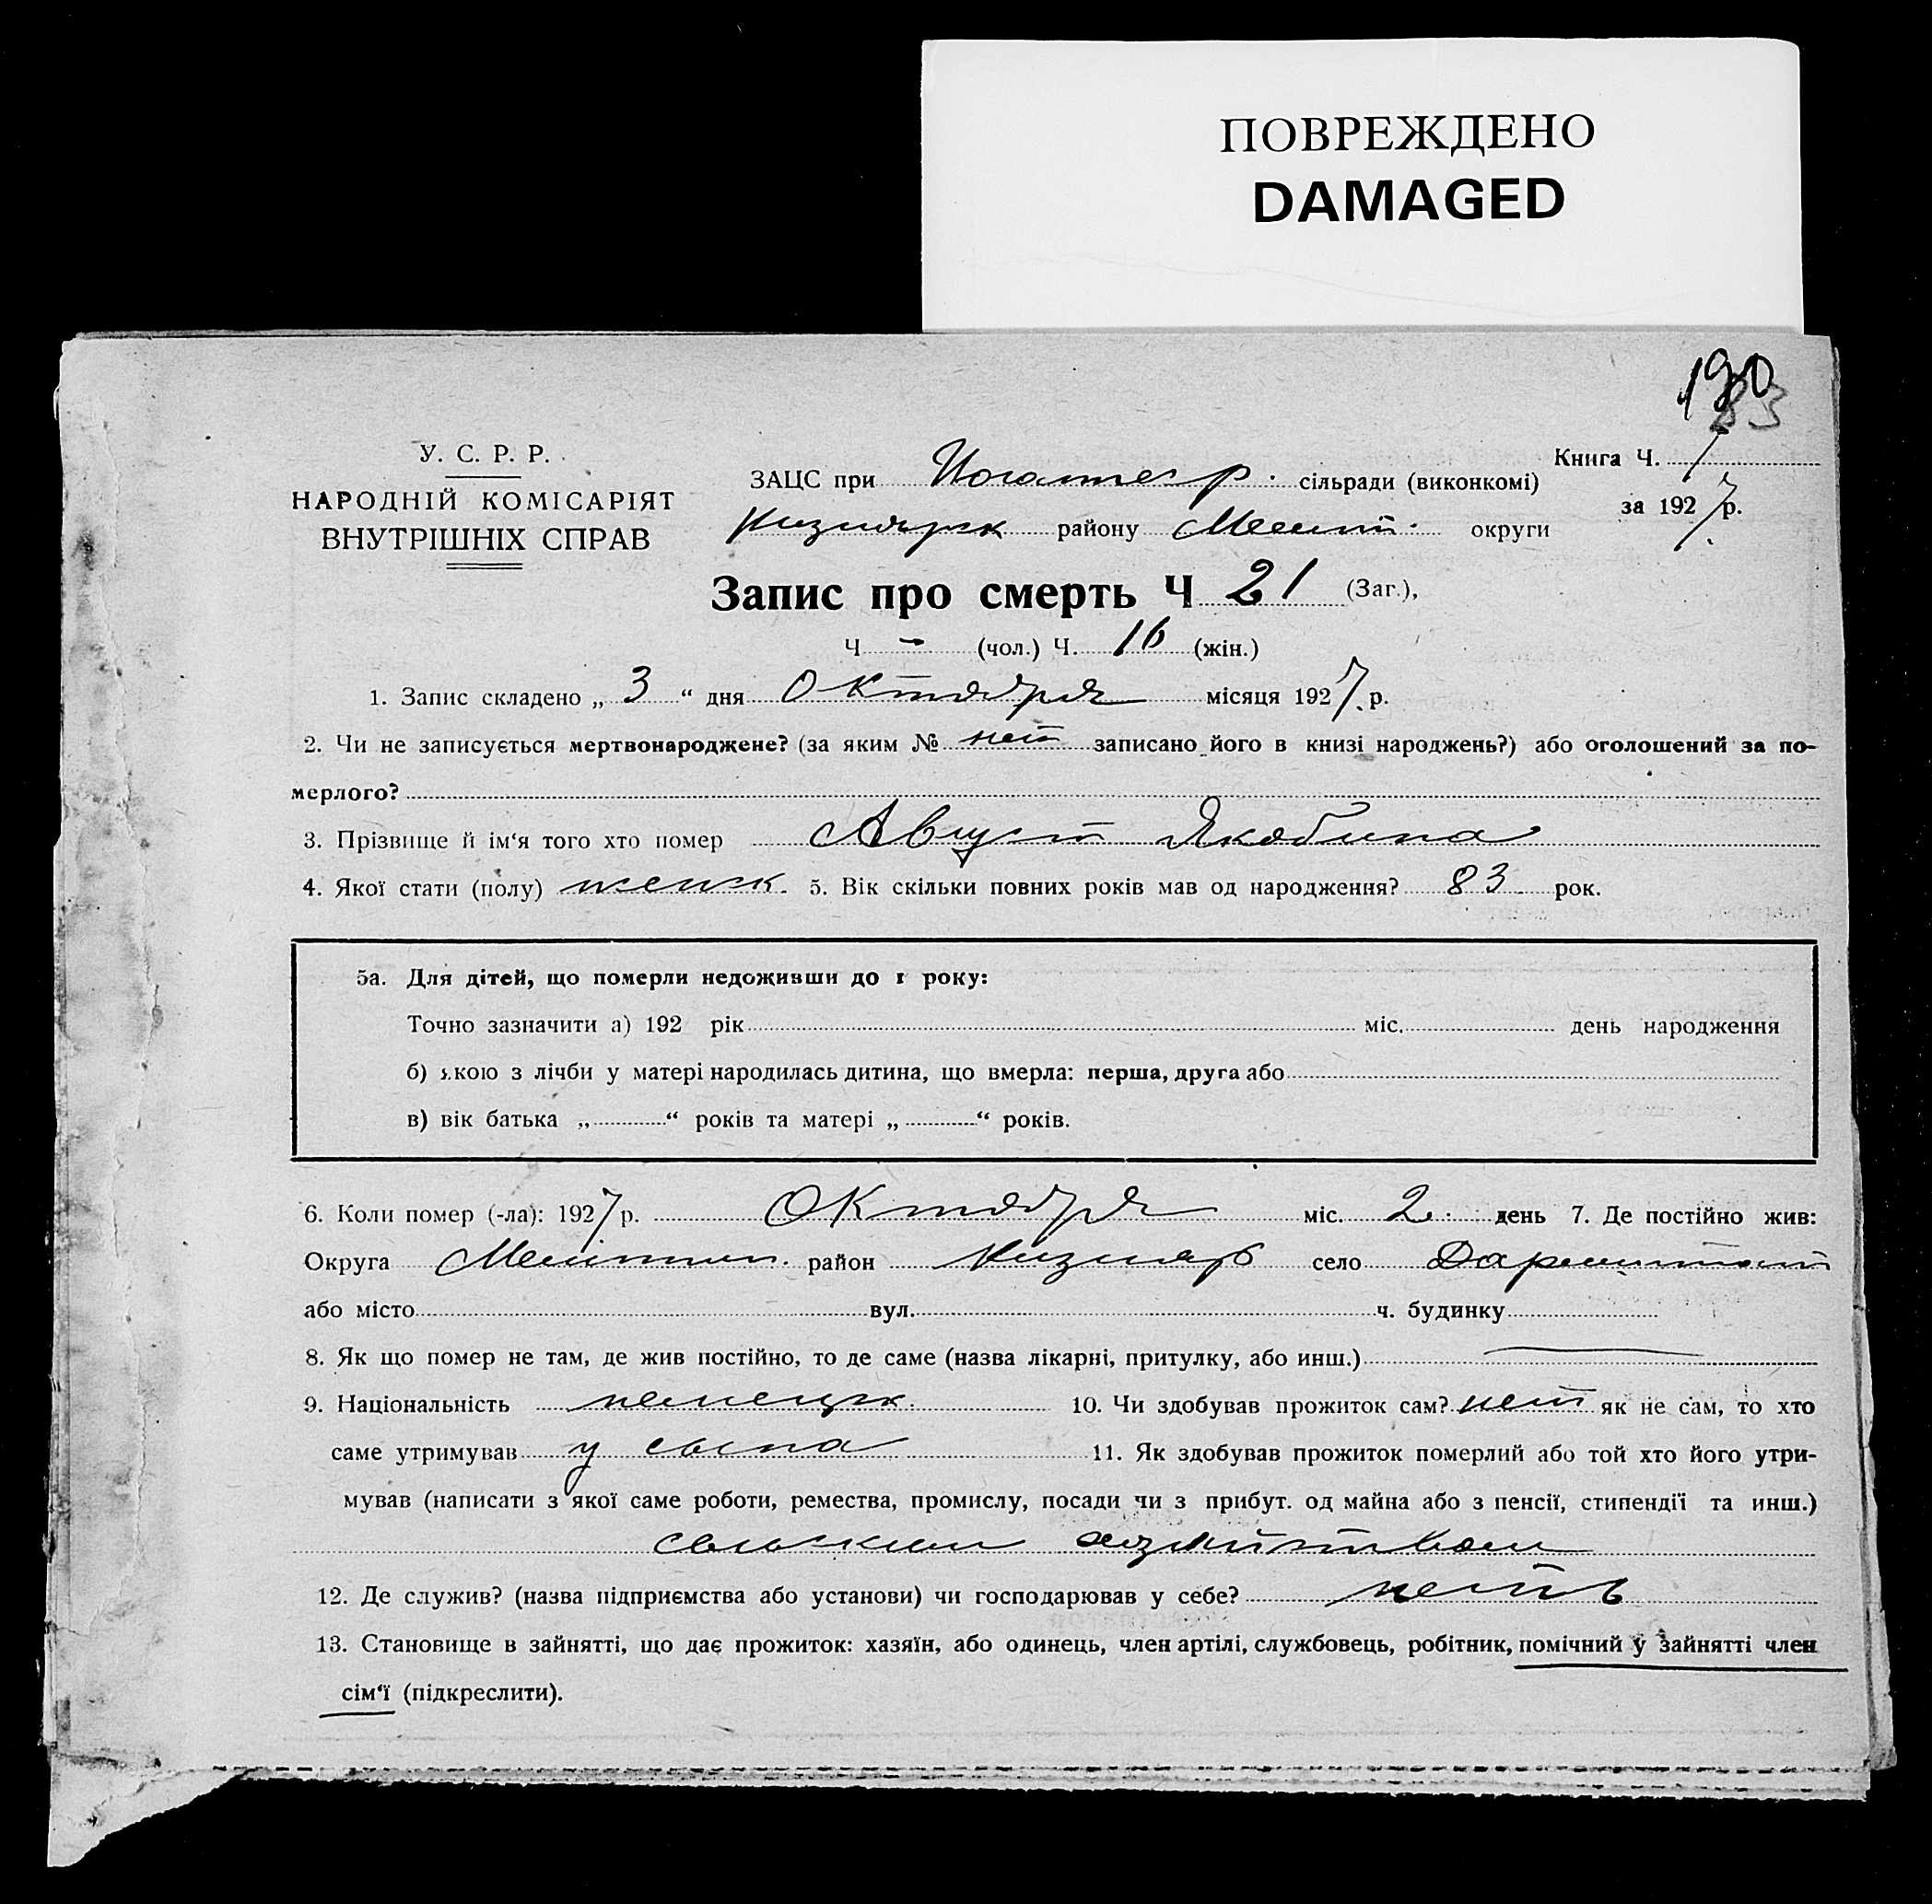 ПОВРЕЖДЕНО
DAMAGED
190
83
У. С. Р. Р.
НАРОДНІЙ КОМІСАРІЯТ
ВНУТРІШНІХ СПРАВ
ЗАЦС при сільради (виконкомі)
району Мелит. округи
Книга Ч. 1
за 1927 р.
Запис про смерть Ч 21 (Заг.),
Ч - (чол.) Ч. 16 (жін.)
1. Запис складено „ 3 “ дня Октября місяця 1927 р.
2. Чи не записується мертвонароджене? (за яким № нет записано його в книзі народжень?) або оголошений за по-
мерлого?
3. Прізвище й ім‘я того хто помер Август Якобина
4. Якої стати (полу) женск. 5. Вік скільки повних років мав од народження? 83 рок.
5а. Для дітей, що померли недоживши до 1 року:
Точно зазначити а) 192 рік міс. день народження
б) якою з лічби у матері народилась дитина, що вмерла: перша, друга або
в) вік батька „ “ років та матері „ “ років.
6. Коли помер (-ла): 1927 р. Октября міс. 2. день 7. Де постійно жив:
Округа Мелитоп. район село Дармштадт
або місто вул. ч. будинку
8. Як що помер не там, де жив постійно, то де саме (назва лікарні, притулку, або инш.)
9. Національність немецк. 10. Чи здобував прожиток сам? нет як не сам, то хто
саме утримував у сына 11. Як здобував прожиток померлий або той хто його утри-
мував (написати з якої саме роботи, ремества, промислу, посади чи з прибут. од майна або з пенсії, стипендії та инш.)
сельским хозяйством
12. Де служив? (назва підприємства або установи) чи господарював у себе? нетъ
13. Становище в зайнятті, що дає прожиток: хазяїн, або одинець, член артілі, службовець, робітник, помічний у зайнятті член
сім‘ї (підкреслити).